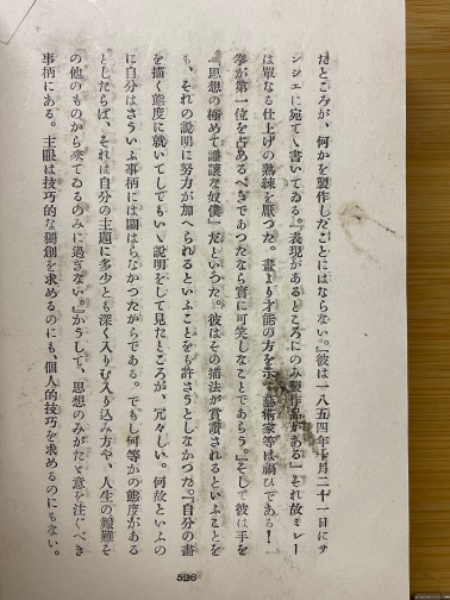 たところが、何かを製作したことにはならない。』彼は一八五四年十月二十一日にサ
ンシエに宛てゝ書いてゐる。『表現があるところにのみ製作品がある』それ故ミレー
は單なる仕上げの熟練を厭つた。『畫より才能の方を示す藝術家等は禍ひである!
手が第一位を占めるべきであつたなら實に可笑しなことであらう。』そして彼は手を
『思想の極めて謙讓な奴僕』だといつた。彼はその描法が賞讃されるといふことを
も、それの説明に努力が加へられるといふことをも許さうとしなかつた。『自分の畫
を描く態度に就いてしてもいゝ説明をして見たところが、冗々しい。何故といふの
に自分はさういふ事柄には關はらなかつたからである。でもし何等かの態度がある
としたらば、それは自分の主題に多少とも深く入りむ入り込み方や、人生の艱難そ
の他のものから來てゐるのみに過ぎない。』かうして、思想のみがたゞ意を注ぐべき
事柄にある。主眼は技巧的な獨創を求めるのにも、個人的技巧を求めるのにもない。
526